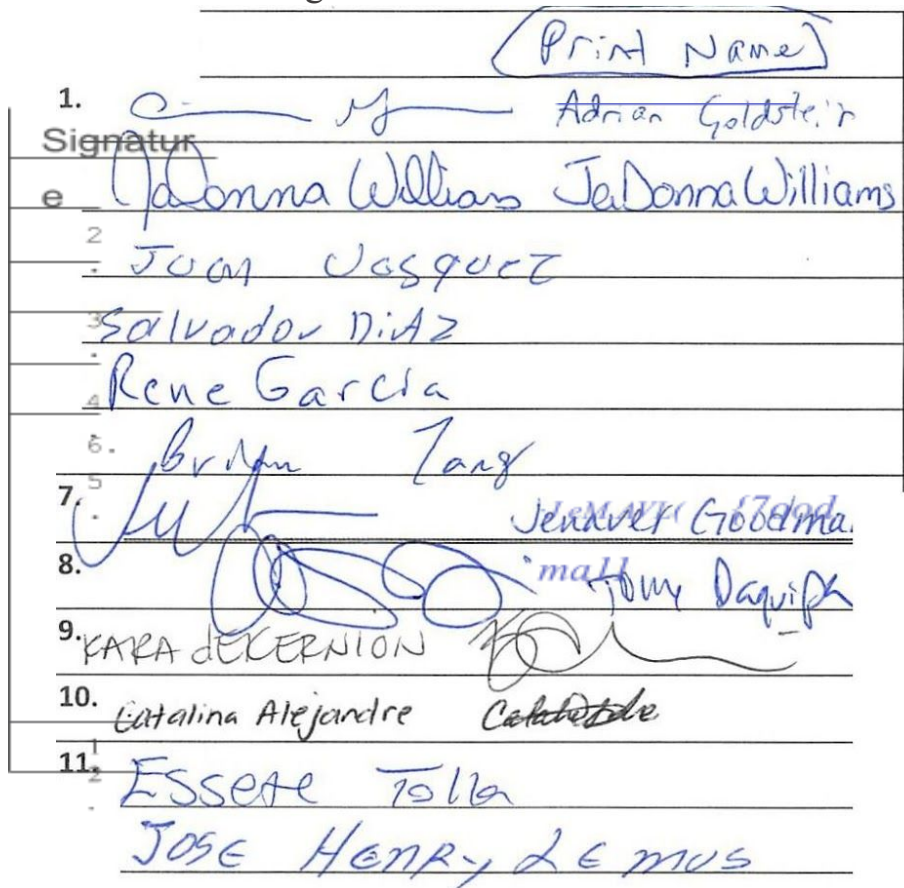 Print Name
1. Adrian Goldstein
Signatur
e JaDonna Williams JaDonna Williams
2
. Juan Vasquez
3 Salvador DiAz
.
Rene Garcia
4
.
6. Brian Zang
5
7. . Jennver Goodma
8. mall Tony
9. KARA dEKERNION
10. Catalina Alejandre
1
11. 2 Essete Tolla
.
JOSE HENRY LEMUS